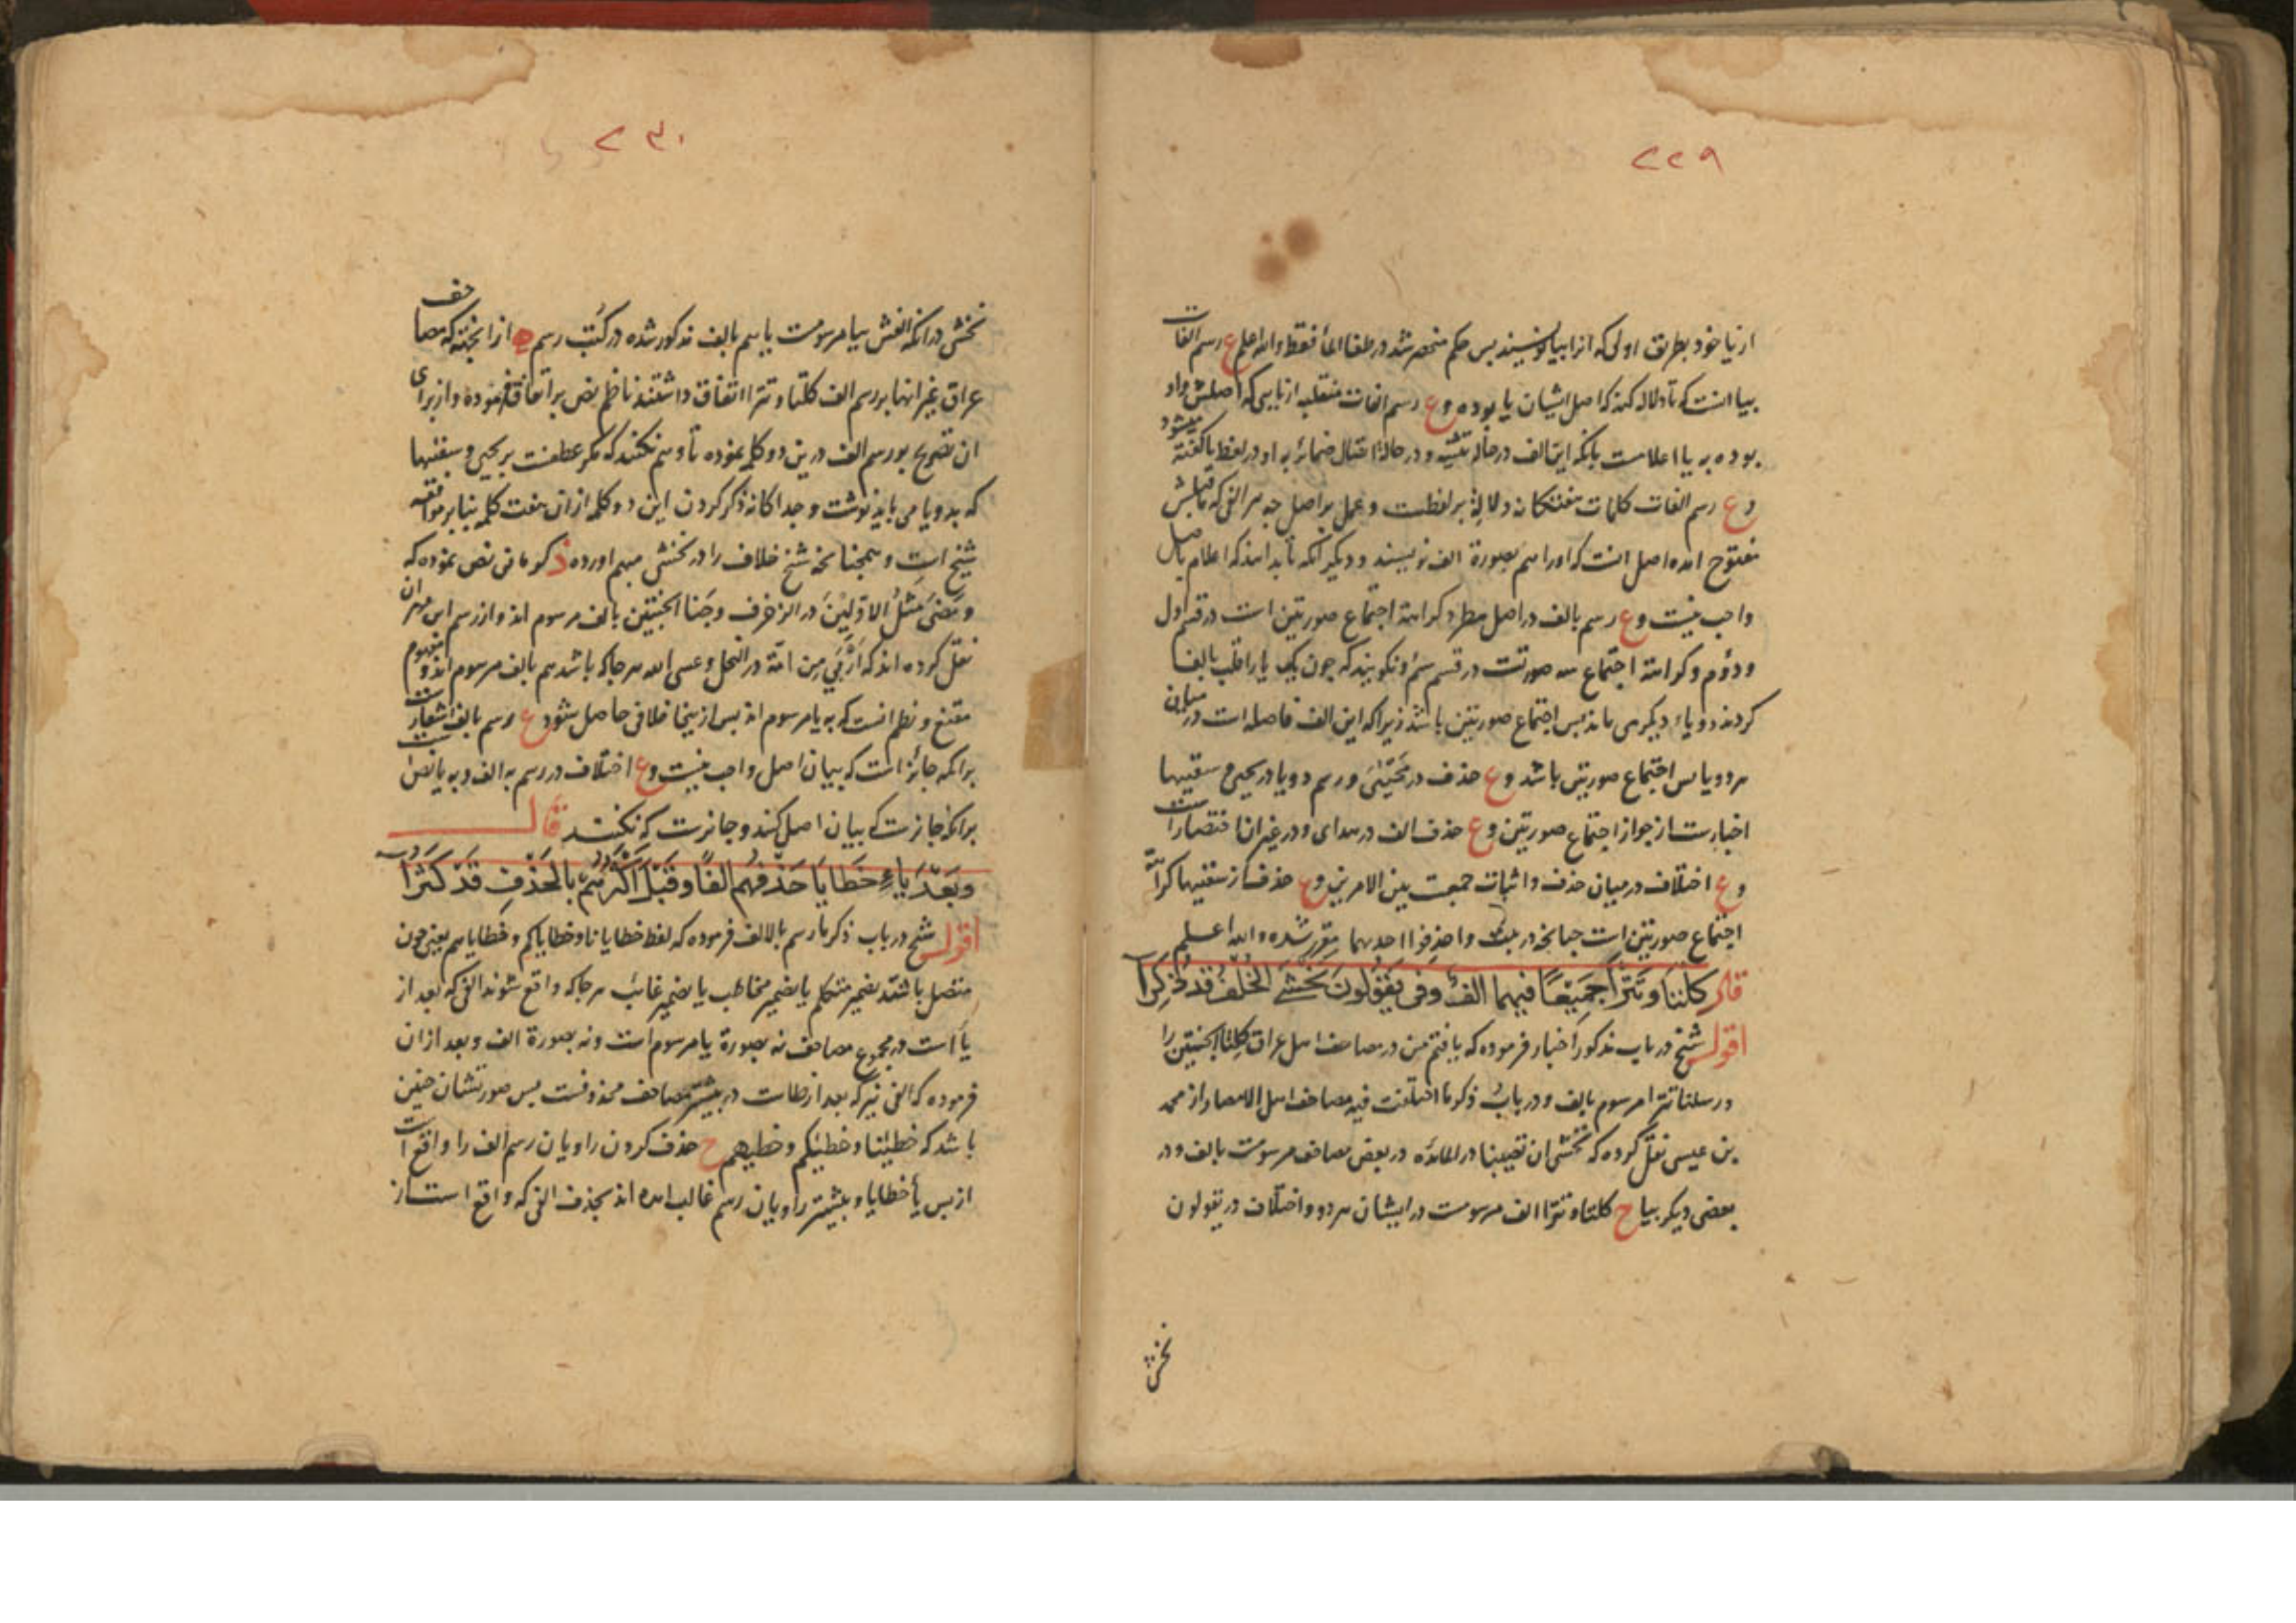 ۲۲۹
از یا خود بطریق اولی که انرا بیا نویسند پس حکم منحصر شد در طغا الماء فقط والله اعلم ع رسم الفات
بیا انست که تا دلاله کند که اصل ایشان یا بوده و ع رسم الفات منقلبه از یایی که اصلش واو
بوده به یا اعلامست بانکه این الف در حاله تثنیه و در حالة اتصال ضمائر به او در لفظ یا کفته میشود
و ع رسم الفات کلمات هفتکانه دلالة بر لفظست و عمل بر اصل چه هر الفی که ماقبلش
مفتوح امده اصل انست که اورا هم بصورة الف نویسند و دیکر انکه تا بدانند که اعلام باصل
واجب نیست و ع رسم بالف در اصل مطرد کراهة اجتماع صورتین است در قسم اول
و دوم و کراهة اجتماع سه صورتست در قسم سیم و نکویند که چون یک یا را قلب بالف
کردند دو یاء دیکر می ماند پس اجتماع صورتین باشد زیرا که این الف فاصله است در میان
هر دو یا پس اجتماع صورتین باشد و ع حذف در مَحْیَیَّ و رسم دو یا در یحیی و سقیها
اخبارست از جواز اجتماع صورتین و ع حذف الف در هدای و در غیر ان اختصارست
و ع اختلاف در میان حذف و اثبات جمعست بین الامرین و ع حذف از سقیها کراهة
اجتماع صورتین است چنانچه در بیت واحذفوا احدیهما مقرر شده والله اعلم
قال کِلْتَا وَتَتْرَا جَمِیْعًا فیهما الفٌ وَفی یَقُولُونَ نَخْشٰی الخُلْفُ قَدْ ذُکِرَا
اقول شیخ در باب مذکور اخبار فرموده که یافتم من در مصاحف اهل عراق کلتا الجنتین را
و رسلنا تترا مرسوم بالف و در باب ذکر ما اختلفت فیه مصاحف اهل الامصار از محمد
بن عیسی نقل کرده که نخشی ان تصیبنا در المائده در بعض مصاحف مرسومست بالف و در
بعضی دیکر بیا ح کلتا و تترا الف مرسومست در ایشان هر دو و اختلاف در یقولون
نخشی
۲۳۰
نخشی در انکه الفش بیا مرسومست یا بهم بالف مذکور شده در کتب رسم از انجهته که مصاحف
عراق غیر انها بر رسم الف کلتا و تترا اتفاق داشتند ناظم نص بر اتفاق فرموده و از برای
ان تصریح بر رسم الف درین دو کلمه نموده تا وهم نکنند که مکر عطفست بر یحیی و سقیها
که بدو یا می باید نوشت و جدا کانه ذکر کردن این دو کلمه از ان هفت کلمه بنا بر موافقه
شیخ است و همچنانچه شیخ خلاف را در نخشی مبهم اورده ذ کرمانی نص نموده که
وَمَضٰی مَثَلُ الاَوَّلِیْنَ در الزخرف و جَنَا الجَنَّتَیْن بالف مرسوم اند و از رسم ابن مهران
نقل کرده اند که اَرْبٰی مِن امّة در النحل و عسی الله هر جا که باشد هم بالف مرسوم اند و مفهوم
مقنع و نظم انست که به یا مرسوم اند پس از ینجا خلافی حاصل شود ع رسم بالف اشعارست
برانکه جائز است که بیان اصل واجب نیست و ع اختلاف در رسم به الف و به یا نص است
برانکه جائزست که بیان اصل کنند و جائزست که نکنند قال
وبَعْدَ یاءِ خَطَایَا حَذْفُهُم الفًا وقَبْلَ اکْثَرُهُم بالحَذْفِ قَدْ کَثُرَا
اقول شیخ در باب ذکر ما رسم بالالف فرموده که لفظ خطایانا و خطایاکم و خطایاهم یعنی چون
متصل باشند بضمیر متکلم یا بضمیر مخاطب یا بضمیر غائب هر جا که واقع شوند الفی که بعد از
یا است در مجموع مصاحف نه بصورة یا مرسوم است و نه بصورة الف و بعد از ان
فرموده که الفی نیز که بعد از طاست در بیشتر مصاحف محذوفست پس صورتشان چنین
باشد که خطیٰنا و خطیٰکم و خطیٰهم ح حذف کردن راویان رسم الف را واقع است
از پس یأ خطایا و بیشتر راویان رسم غالب امده اند بحذف الفی که واقع است از